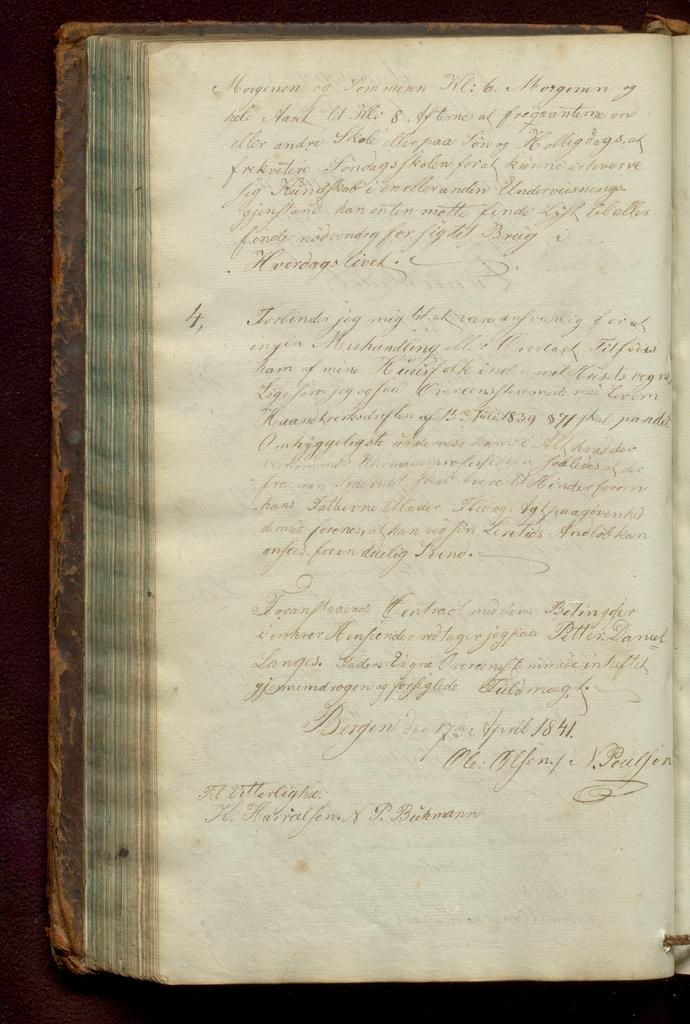 Morgenen og Sommeren Kl: 6. Morgenen og
hele Aaret til Kl: 8 Aftene at freqvantere en
eller anden Skole eller paa Søn og Helligdags, at
frekvetere Søndagsskolen for at kunne erhverve
sig Kundskab i en eller anden Underviisnings
gjenstand han enten motte finde Lÿst til eller
finde nødvendig for sig til Brug i
Hverdagslivet.
4, Forbinder jeg mig til at være ansvarlig for at
ingen Mishandling eller Overlast Tilføies
ham af mine Huusfolk inden mit Huusets vegne
Ligesom jeg ogsaa Overeenstemmede med Lovom
Haandverksdriften af 15de Juli 1839 § 71 skal paa det
Omhyggeligste undervise ham i Alt hvad der
vedkommer Uhrmagerprofessionen saaledes at der
fra min Side intet skal være til Hinder forom
hans Fatteevne tillader Flid og Agtpaagivenhed
dermed forenes, at han ved sin Læretids Andløb kan
ansees for en duelig Svend.
Foranstaaende Contract med dens Betingelser
i enhver Henseender vedtager jeg paa Petter Daniel
Langes. Faders Vegne Overeenstemmende inheftet
gjennemdragen og forseglede Fuldmagt.
Bergen den 17de April 1841.
Ole: Olsen / N. Poulson
Til Vitterlighed:
K. Harralsen. N P. Buhmann